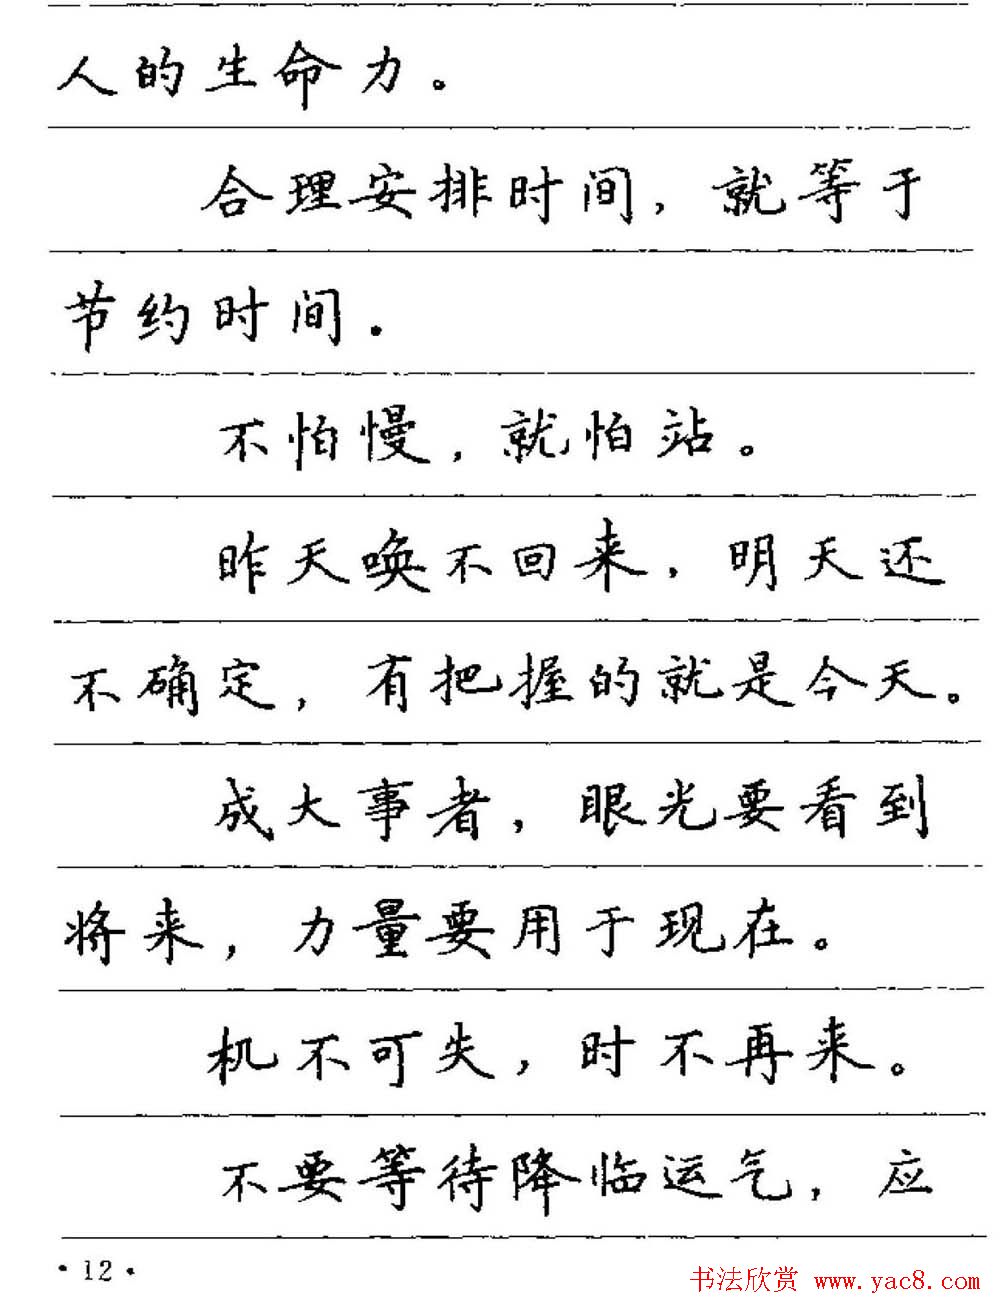 人的生命力。
合理安排时间，就等于
节约时间.
不怕慢，就怕站。
昨天唤不回来，明天还
不确定，有把握的就是今天。
成大事者，眼光要看到
将来，力量要用于现在。
机不可失，时不再来。
不要等待降临运气，应
·12·
书法欣赏 www.yac8.com